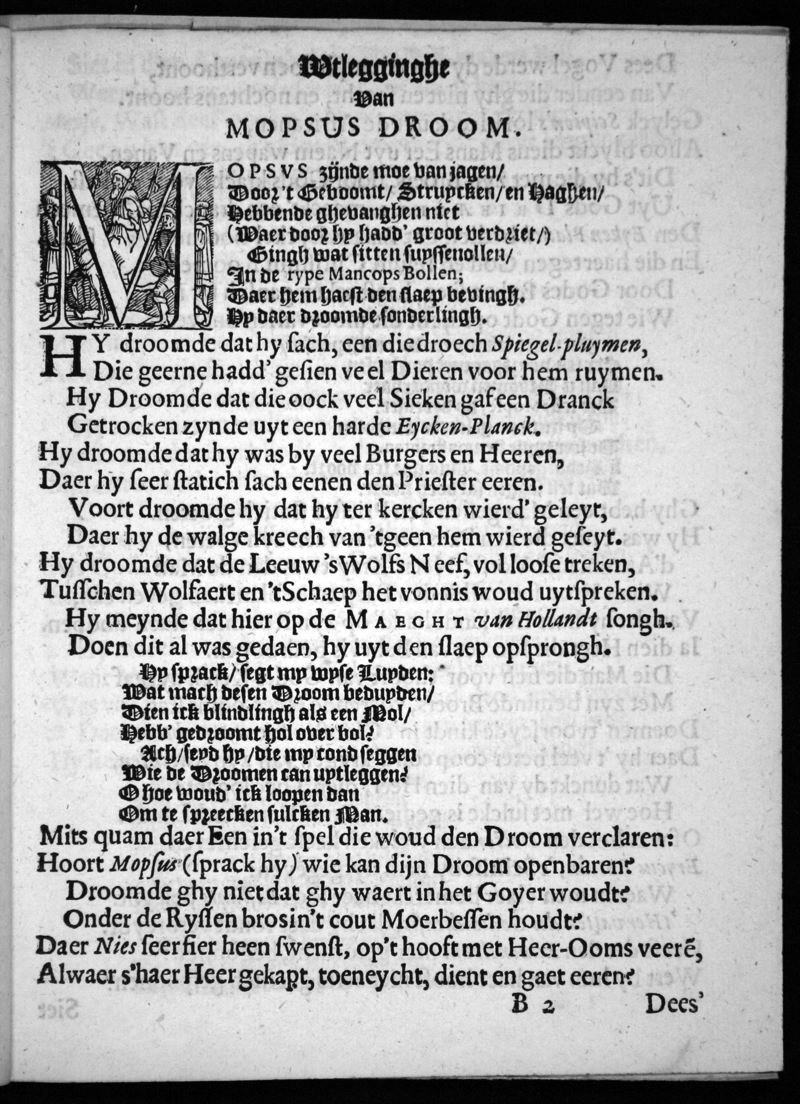 Wtlegginghe
Van
MOPSUS DROOM.
MOPSVS zijnde moe van jagen/
Door 't Geboomt/ Struycken/ en Haghen/
Hebbende ghevanghen niet
(Waer door hy hadd' groot verdriet/)
Gingh wat sitten suyssenollen/
In de rype Mancops Bollen;
Daer hem haest den slaep bevingh.
Hy daer droomde sonderlingh.
HY droomde dat hy ſach, een die droech Spiegel-pluymen,
Die geerne hadd' geſien veel Dieren voor hem ruymen.
Hy Droomde dat die oock veel Sieken gaf een Dranck
Getrocken zynde uyt een harde Eycken-Planck.
Hy droomde dat hy was by veel Burgers en Heeren,
Daer hy ſeer ſtatich ſach eenen den Prieſter eeren.
Voort droomde hy dat hy ter kercken wierd' geleyt,
Daer hy de walge kreech van 'tgeen hem wierd geſeyt.
Hy droomde dat de Leeuw 's Wolfs Neef, vol looſe treken,
Tuſſchen Wolfaert en 'tSchaep het vonnis woud uytſpreken.
Hy meynde dat hier op de MAEGHT van Hollandt ſongh.
Doen dit al was gedaen, hy uyt den ſlaep opſprongh.
Hy sprack/ segt my wyse Luyden:
Wat mach desen Droom beduyden/
Dien ick blindlingh als een Mol/
Hebb' gedroomt hol over bol?
Ach/ seyd hy/ die my cond seggen
Wie de Droomen can uytleggen?
O hoe woud' ick loopen dan
Om te spreecken sulcken Man.
Mits quam daer Een in't ſpel die woud den Droom verclaren:
Hoort Mopſus (ſprack hy) wie kan dijn Droom openbaren?
Droomde ghy niet dat ghy waert in het Goyer woudt?
Onder de Ryſſen bros in't cout Moerbeſſen houdt?
Daer Nies ſeer fier heen ſwenſt, op't hooft met Heer-Ooms veerẽ,
Alwaer s'haer Heer gekapt, toeneycht, dient en gaet eeren?
B 2 Dees'